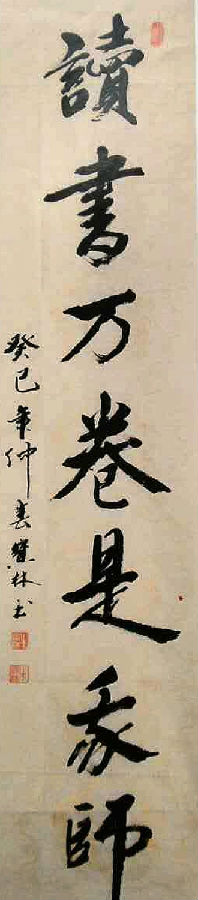 讀書万卷是我師
癸巳年仲春寶林书